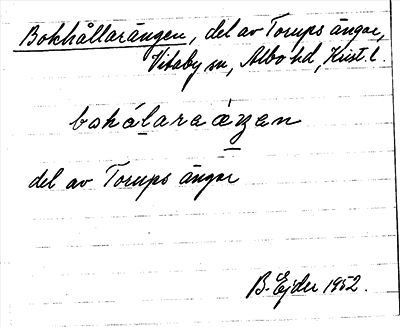 Bokhållarängen, del av Torups ängar,
Vitaby sn, Albo hd, Krist. l.
bokálaraäŋen
del av Torups ängar
B. Ejder 1952.